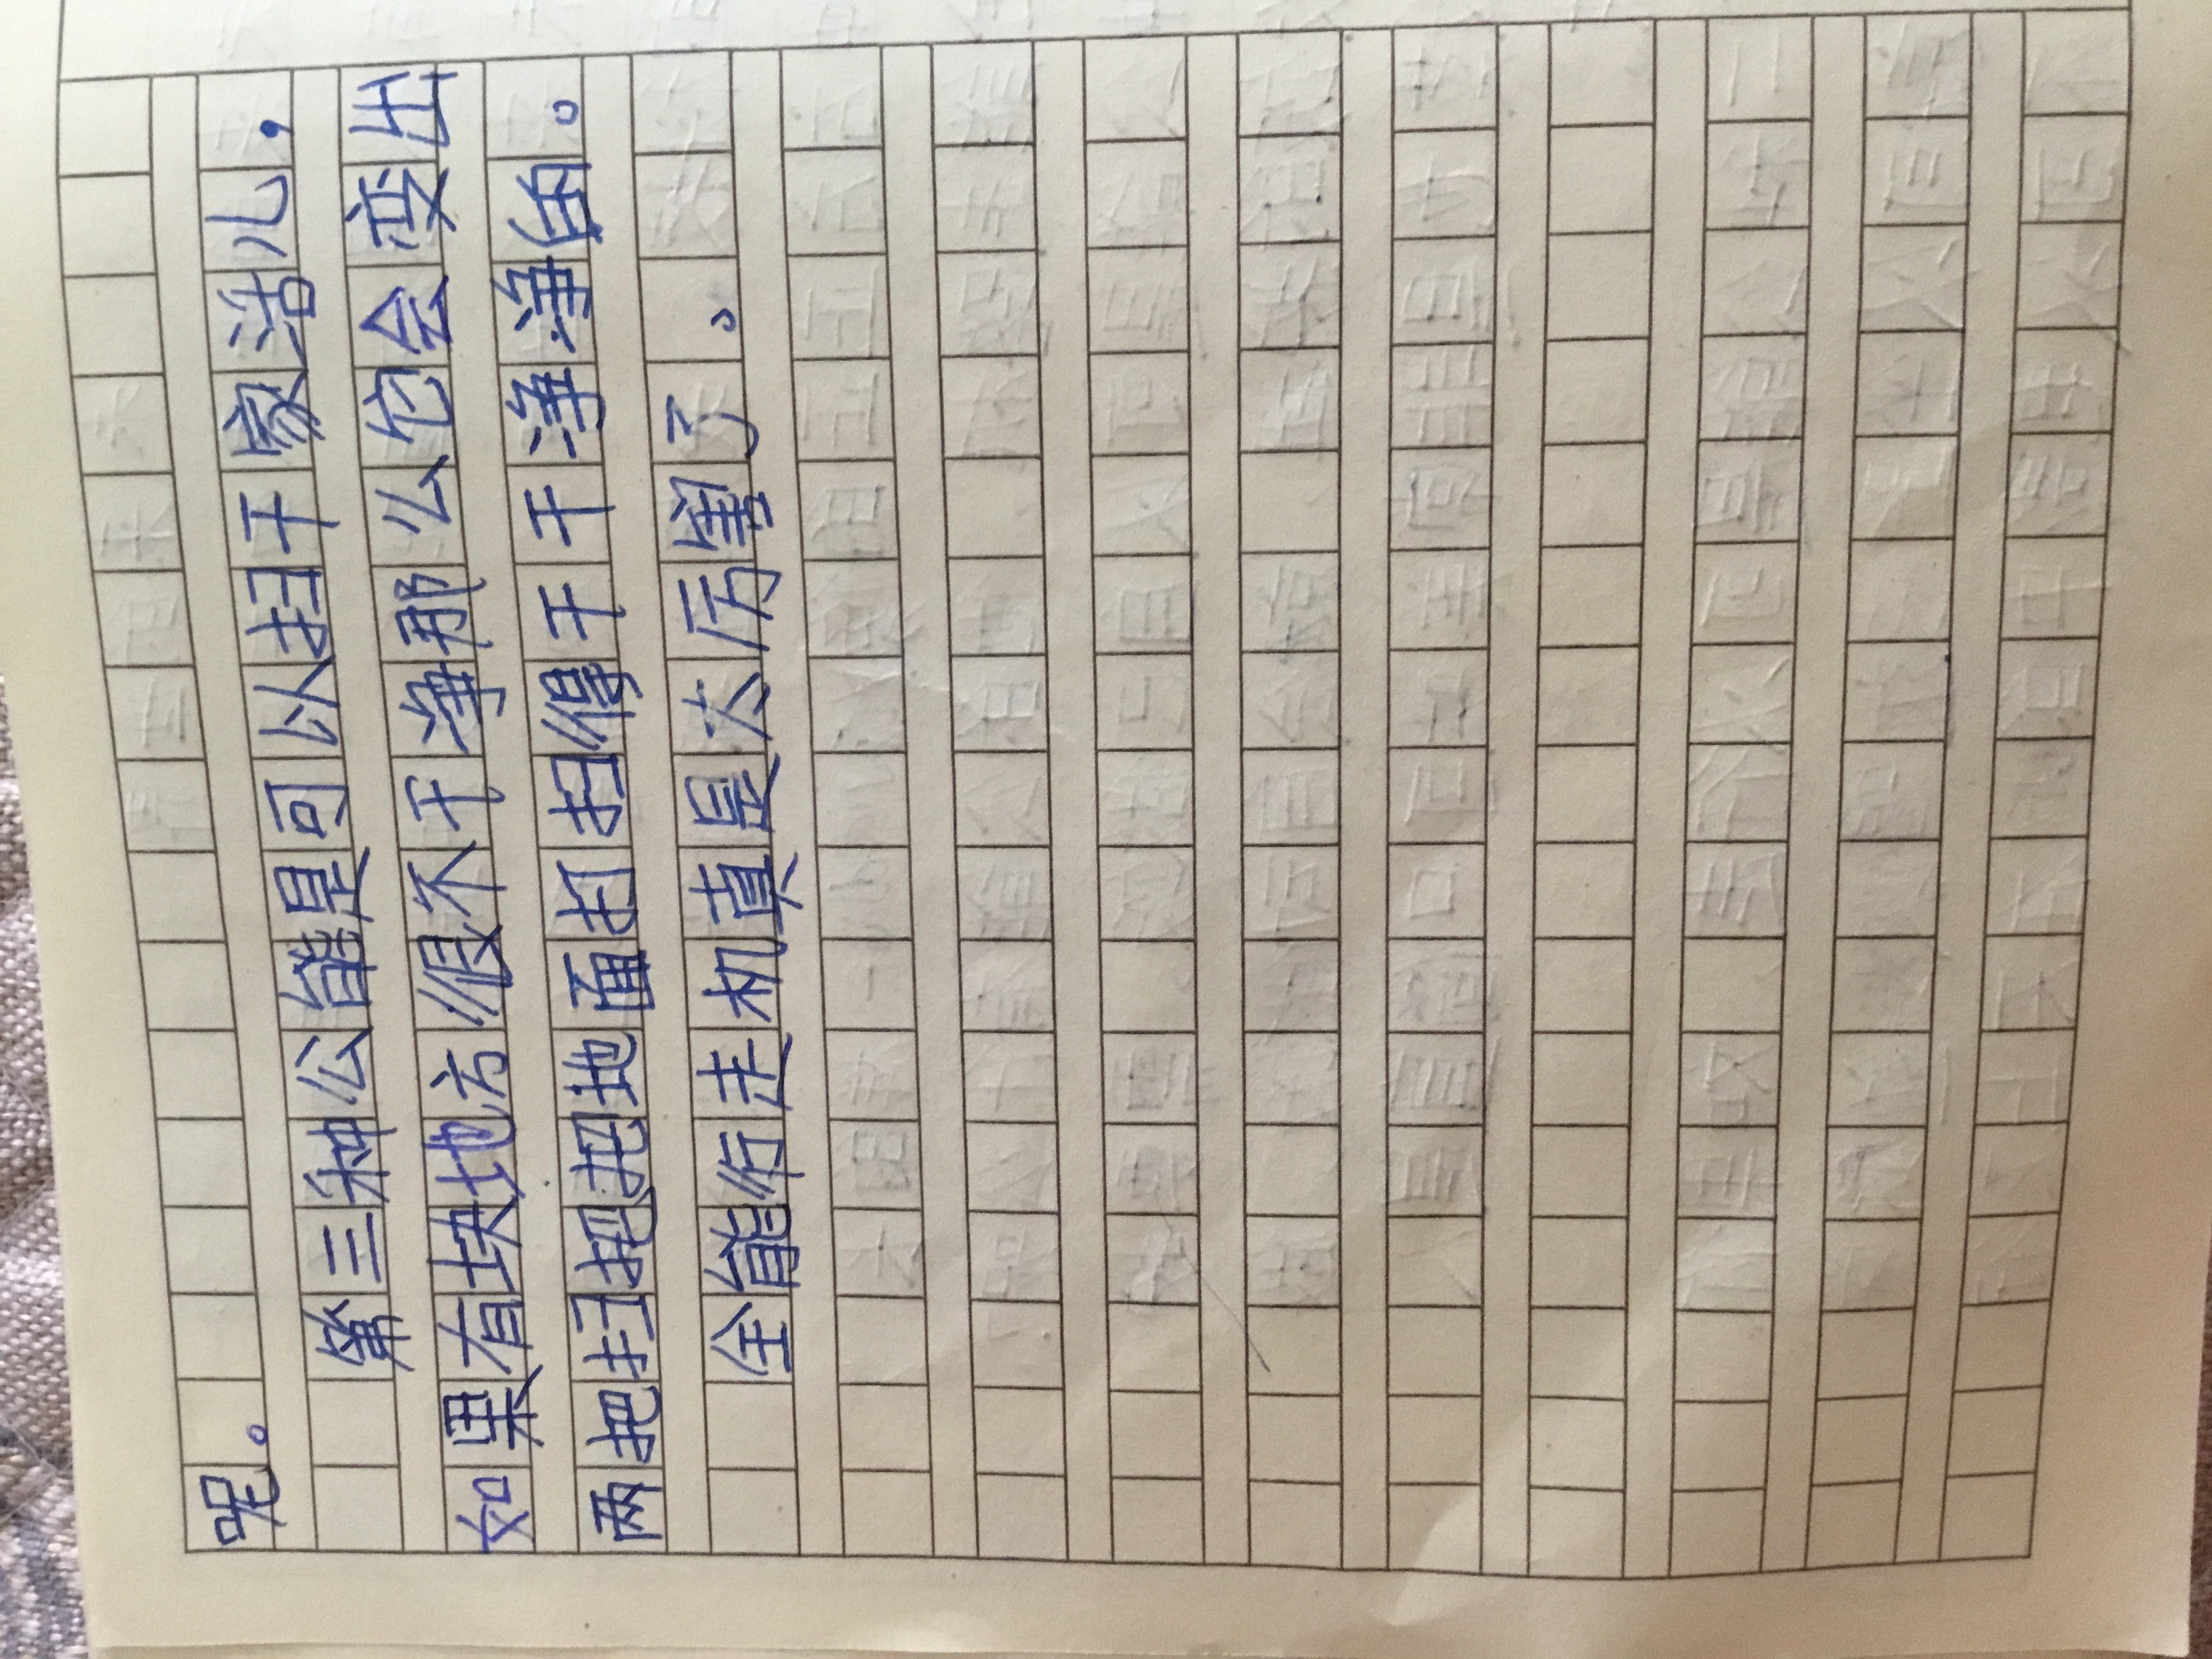 呢。
第三种公能是可以扫干家活儿，
如果有块地方很不干净那么它会变出
两把扫把把地面打扫得干干净净的。
全能行走机真是太厉害了。